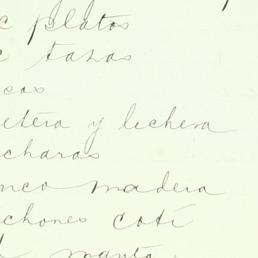 c platos
c tazas
cas
etera y lechera
charas
nco madera
chones cotí
manta